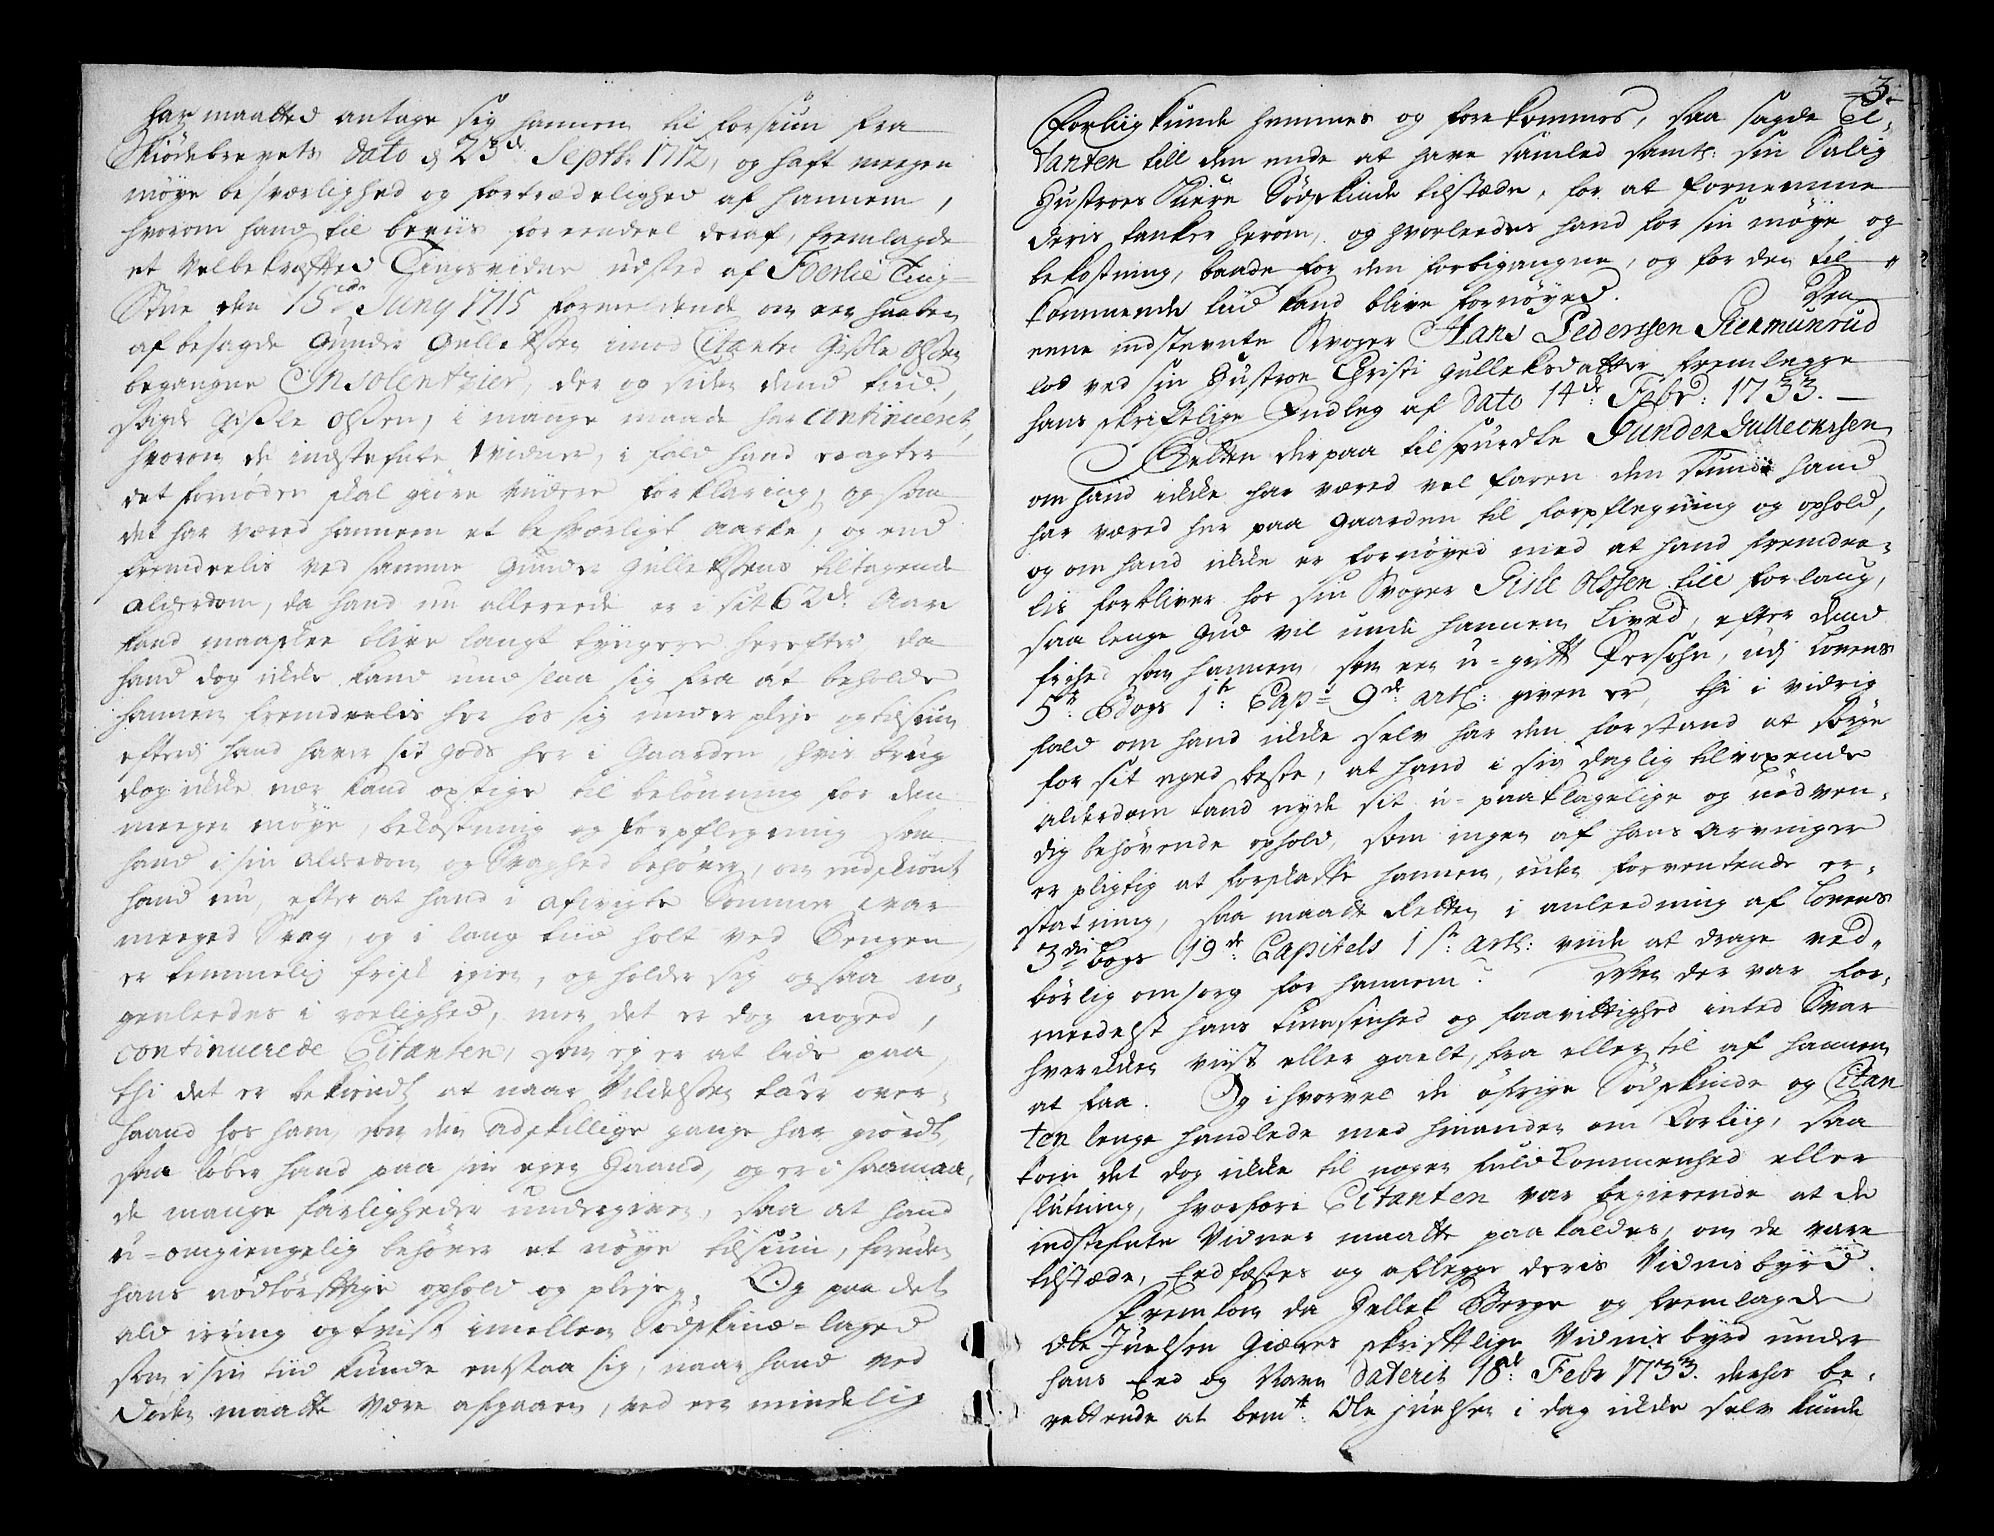 har maatted antage sig hannem til forsiun fra
Skiödebrevets dato d 23de Septb: 1712, og haft megen
möye besværlighed og fortrædelighed af hannem,
hvorom hand til beviis for eendeel deraf, fremlagde
et Velbekræfted Tingsvidne udsted af Foerlie Ting-
Stue den 15de Juny 1715 formeldende om een haaben
af besagde Gunder Gulleksen imod Citanten Gisle Olsen
begangne Insolentzier, der og siden dend tiid,
sagde Gisle Olssen, i mange maade har continueret,
hvorom de indstefnte Vidner, i fald hand eragter
det fornöden skal giöre Videre forklaring, og som
det har været hannem et besværligt aarke, og end
fremdeelis ved samme Gunder Gulleksens tiltagende
alderdom, da hand nu allereede er i sit 62de Aar
kand maaskee blive langt tyngere herefter da
hand dog ikke kand und slaa sig fra at beholde
hannem fremdeelis her hos sig under pleje og tilsiun
efterdj hand haver sit gods her i Gaarden, hvis brug
dog ikke nær kand opstige til belönning for den
megen möye, bekostning og forpflegning som
hand i sin alderdom og Svaghed behöver, om endskiönt
hand nu, efter at hand i afvigte Sommer var
meeged Svag, og i lang tiid holt ved Sengen,
er temmelig frisk igien, og holder sig ogsaa no-
genleedes i roelighed, men det er dog noged,
continuerede Citanten, som ej er at lide paa
thi det er bekiendt at naar Vildelsen tager over-
haand hos ham, som den adskillige gange har giordt,
saa löber hand paa sin egen Haand, og er i saamaa-
de mange farligheder undergiven, saa at hand
u-omgiengelig behöver et nöye tilsiun, foruden
hans nödtörftige ophold og pleje. Og paa det
ald irring og tvist imellem Södskind-laged
som i sin tiid kunde entstaa sig, naar hand ved
Döden maatte være afgaaen, ved een mindelig
3.
Forliig kunde hemmes og forekommes, saa sagde Ci-
tanten till den ende at have samled samtl: sin Salig
Hustroes Kiere Södskinde tilstæde, for at fornemme
deris tanker herom, og hvorleedes hand for sin möye og
bekostning, baade for den forbigangne, og for den til-
kommende tiid kand blive fornöyed. Den
eene indstevnte Svoger Hans Pederssen Giermunrud
lod ved sin Hustroe Christi Gulleksdatter fremlegge
hans skriftlige Indleg af dato 14de Febr: 1733. —
Retten derpaa tilspurdte Gunder Gullecksen
om hand ikke har været vel faren den stund hand
har været her paa gaarden til forpflegning og ophold,
og om hand ikke er fornöyed med at hand fremdee-
lis forbliver hos sin Svoger Gisle Olssen till forlaug,
saa lenge Gud vil unde hannem Lived, efter dend
frihed som hannem som een u-gift Persohn, udj Lovens
5te Bogs 1te Cap: 9de artl: given er, thi i vidrig
fald om hand ikke selv har den forstand at sörge
for sit eged beste, at hand i sin daglig tilvoxende
alderdom kand nyde sit u-paaklagelige og nödven-
dig behövende ophold, som ingen af hans arvinger
er pligtig at forskaffe hannem, uden forventende er-
statning, saa maatte Retten i anleedning af Lovens
3die Bogs 19de Capitels 1ste artl: viide at drage ved-
börlig omsorg for hannem? Men der var for-
meedelst hans tumsenhed og faavittighed inted Svar
hverken vist eller galt, fra eller til af hannem
at faa. Og ihvorvel de öfrige Södskinde og Citan
ten lenge handlede med hinanden om Forliig, saa
kom det dog ikke til nogen fuldkommenhed eller
slutning, hvorfore Citanten var begierende at de
indstefnte Vidner maatte paakaldes, om de vare
tilstæde, Eedfæstes og aflegge deris Vidnisbyrd.
Fremkom da Gullek Berge og fremlagde
Ole Juelsen Giæves skriftlige Vidnisbyrd under
hans Eed og Navn daterit 18de Febr 1733. derhos be-
rettende at bemte Ole Juelsen i dag ikke selv kunde